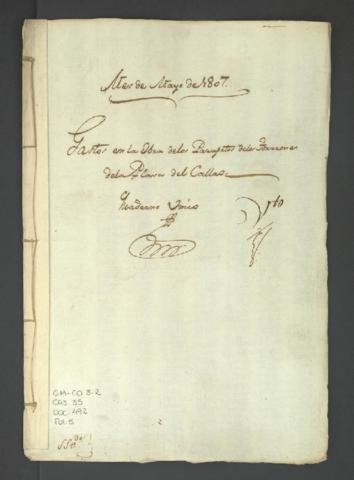 Mes de Mayo de 1807.
Gastos en la Obra delos Parapetos delos Torreones
dela Plasa del Callao.
Quaderno Unico
GM-CO 3-2
CAJ 35
DOC. 492
Fol. 5